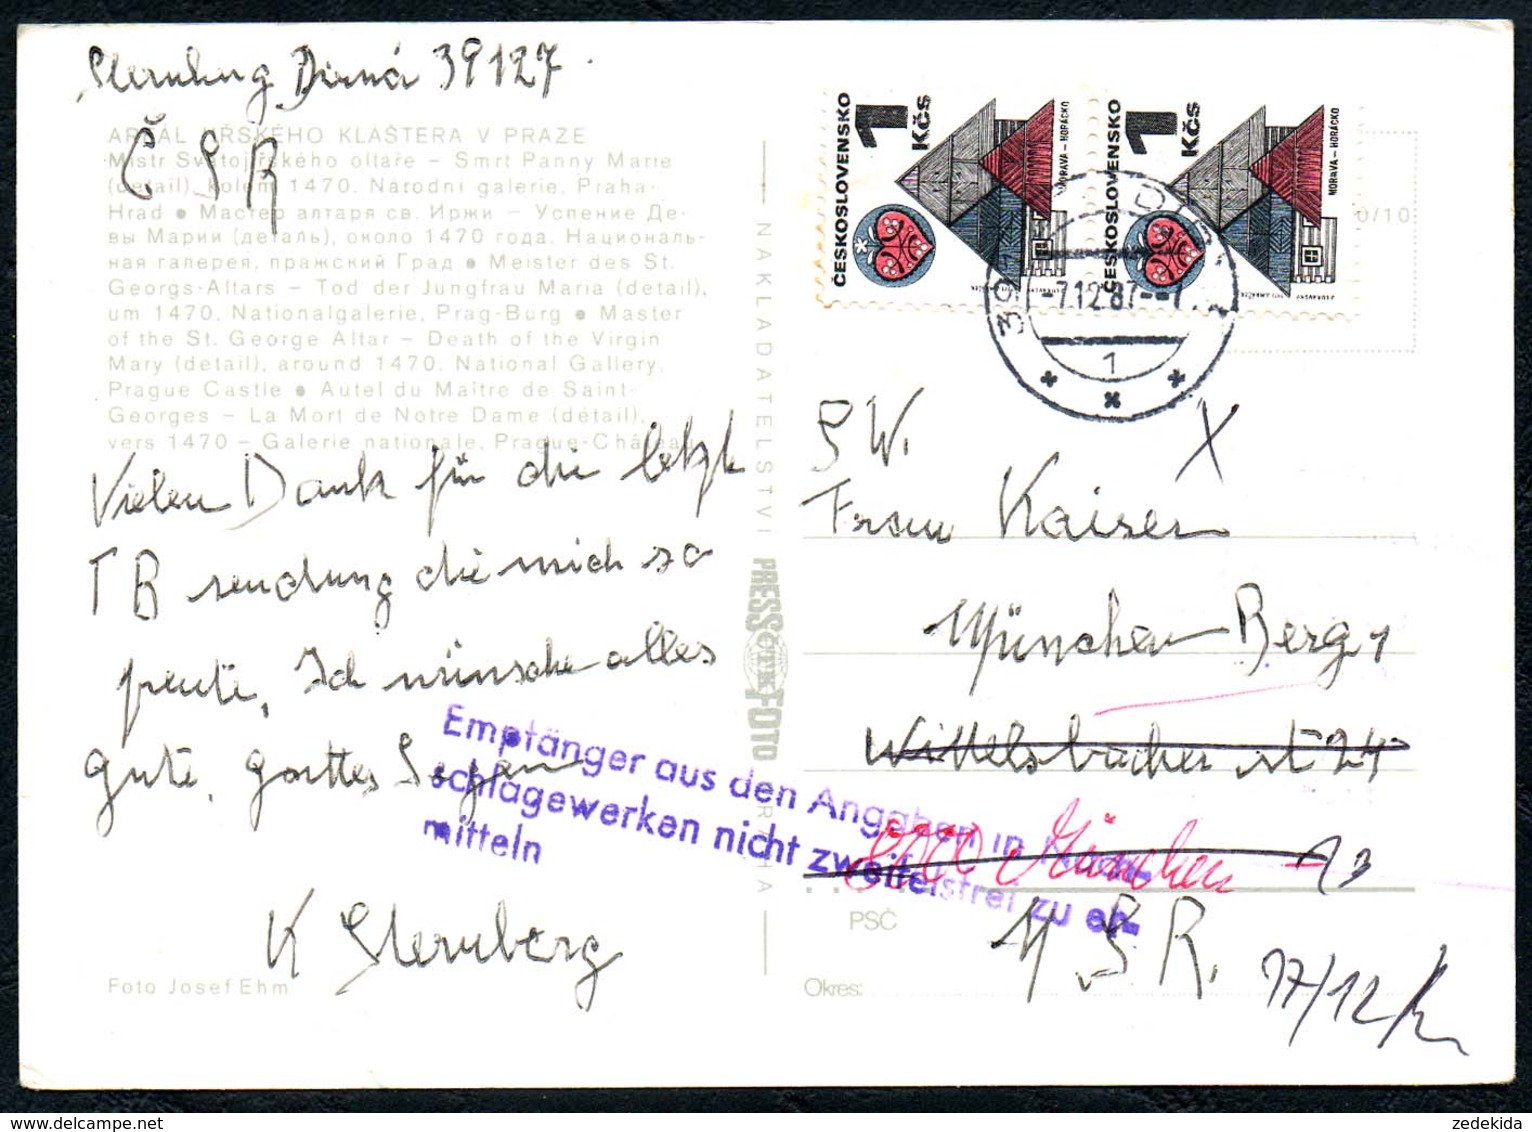 Sternberg Dirná 39127
Č S R
AREÁL JIŘSKÉHO KLÁŠTERA V PRAZE
Mistr Svatojiřského oltáře – Smrt Panny Marie
(detail), kolem 1470. Národní galerie, Praha-
Hrad ● Мастер алтаря св. Иржи – Успение Де-
вы Марии (деталь), около 1470 года. Националь-
ная галерея, пражский Град ● Meister des St.
Georgs-Altars – Tod der Jungfrau Maria (detail),
um 1470, Nationalgalerie, Prag-Burg ● Master
of the St. George Altar – Death of the Virgin
Mary (detail), around 1470. National Gallery,
Prague Castle ● Autel du Maître de Saint-
Georges – La Mort de Notre Dame (détail),
vers 1470 – Galerie nationale, Prague-Château
Vielen Dank für die letzt
TB sendung die mich so
freute, Ich wünsche alles
gute, Gottes Segen
K Sternberg
Foto Josef Ehm
NAKLADATELSTVÍ PRESSFOTO PRAHA
ČTK
Empfänger aus den Angaben in Nach-
schlagewerken nicht zweifelsfrei zu er-
mitteln
ČESKOSLOVENSKO
1 Kčs
MORAVA – HORÁCKO
ČESKOSLOVENSKO
1 Kčs
MORAVA – HORÁCKO
0/10
-7.12.87--
1
S W. X
Frau Kaiser
München Berg 1
Wittelsbacher st 24
8000 München 13
PSČ
N.S.R.
Okres:
17/12
zedekida